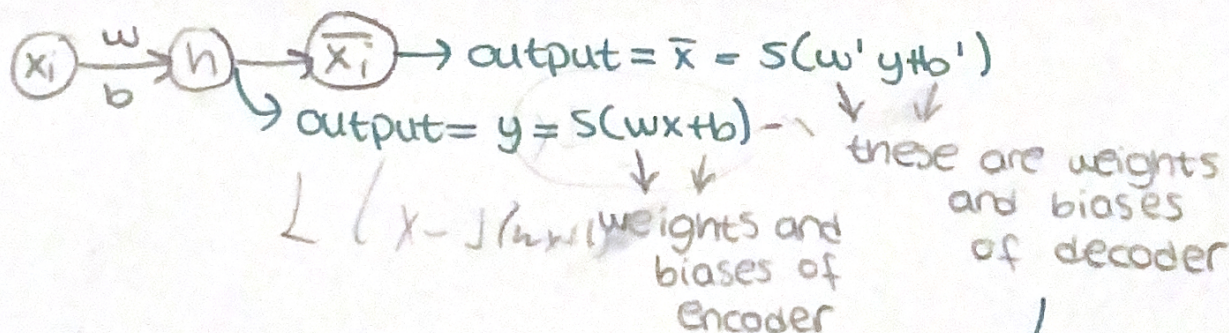 xi w b h x̄i → output = x̄ = S(w' y+b')
output = y = S(wx+b)
these are weights
and biases
of decoder
L ( x -
weights and
biases of
encoder